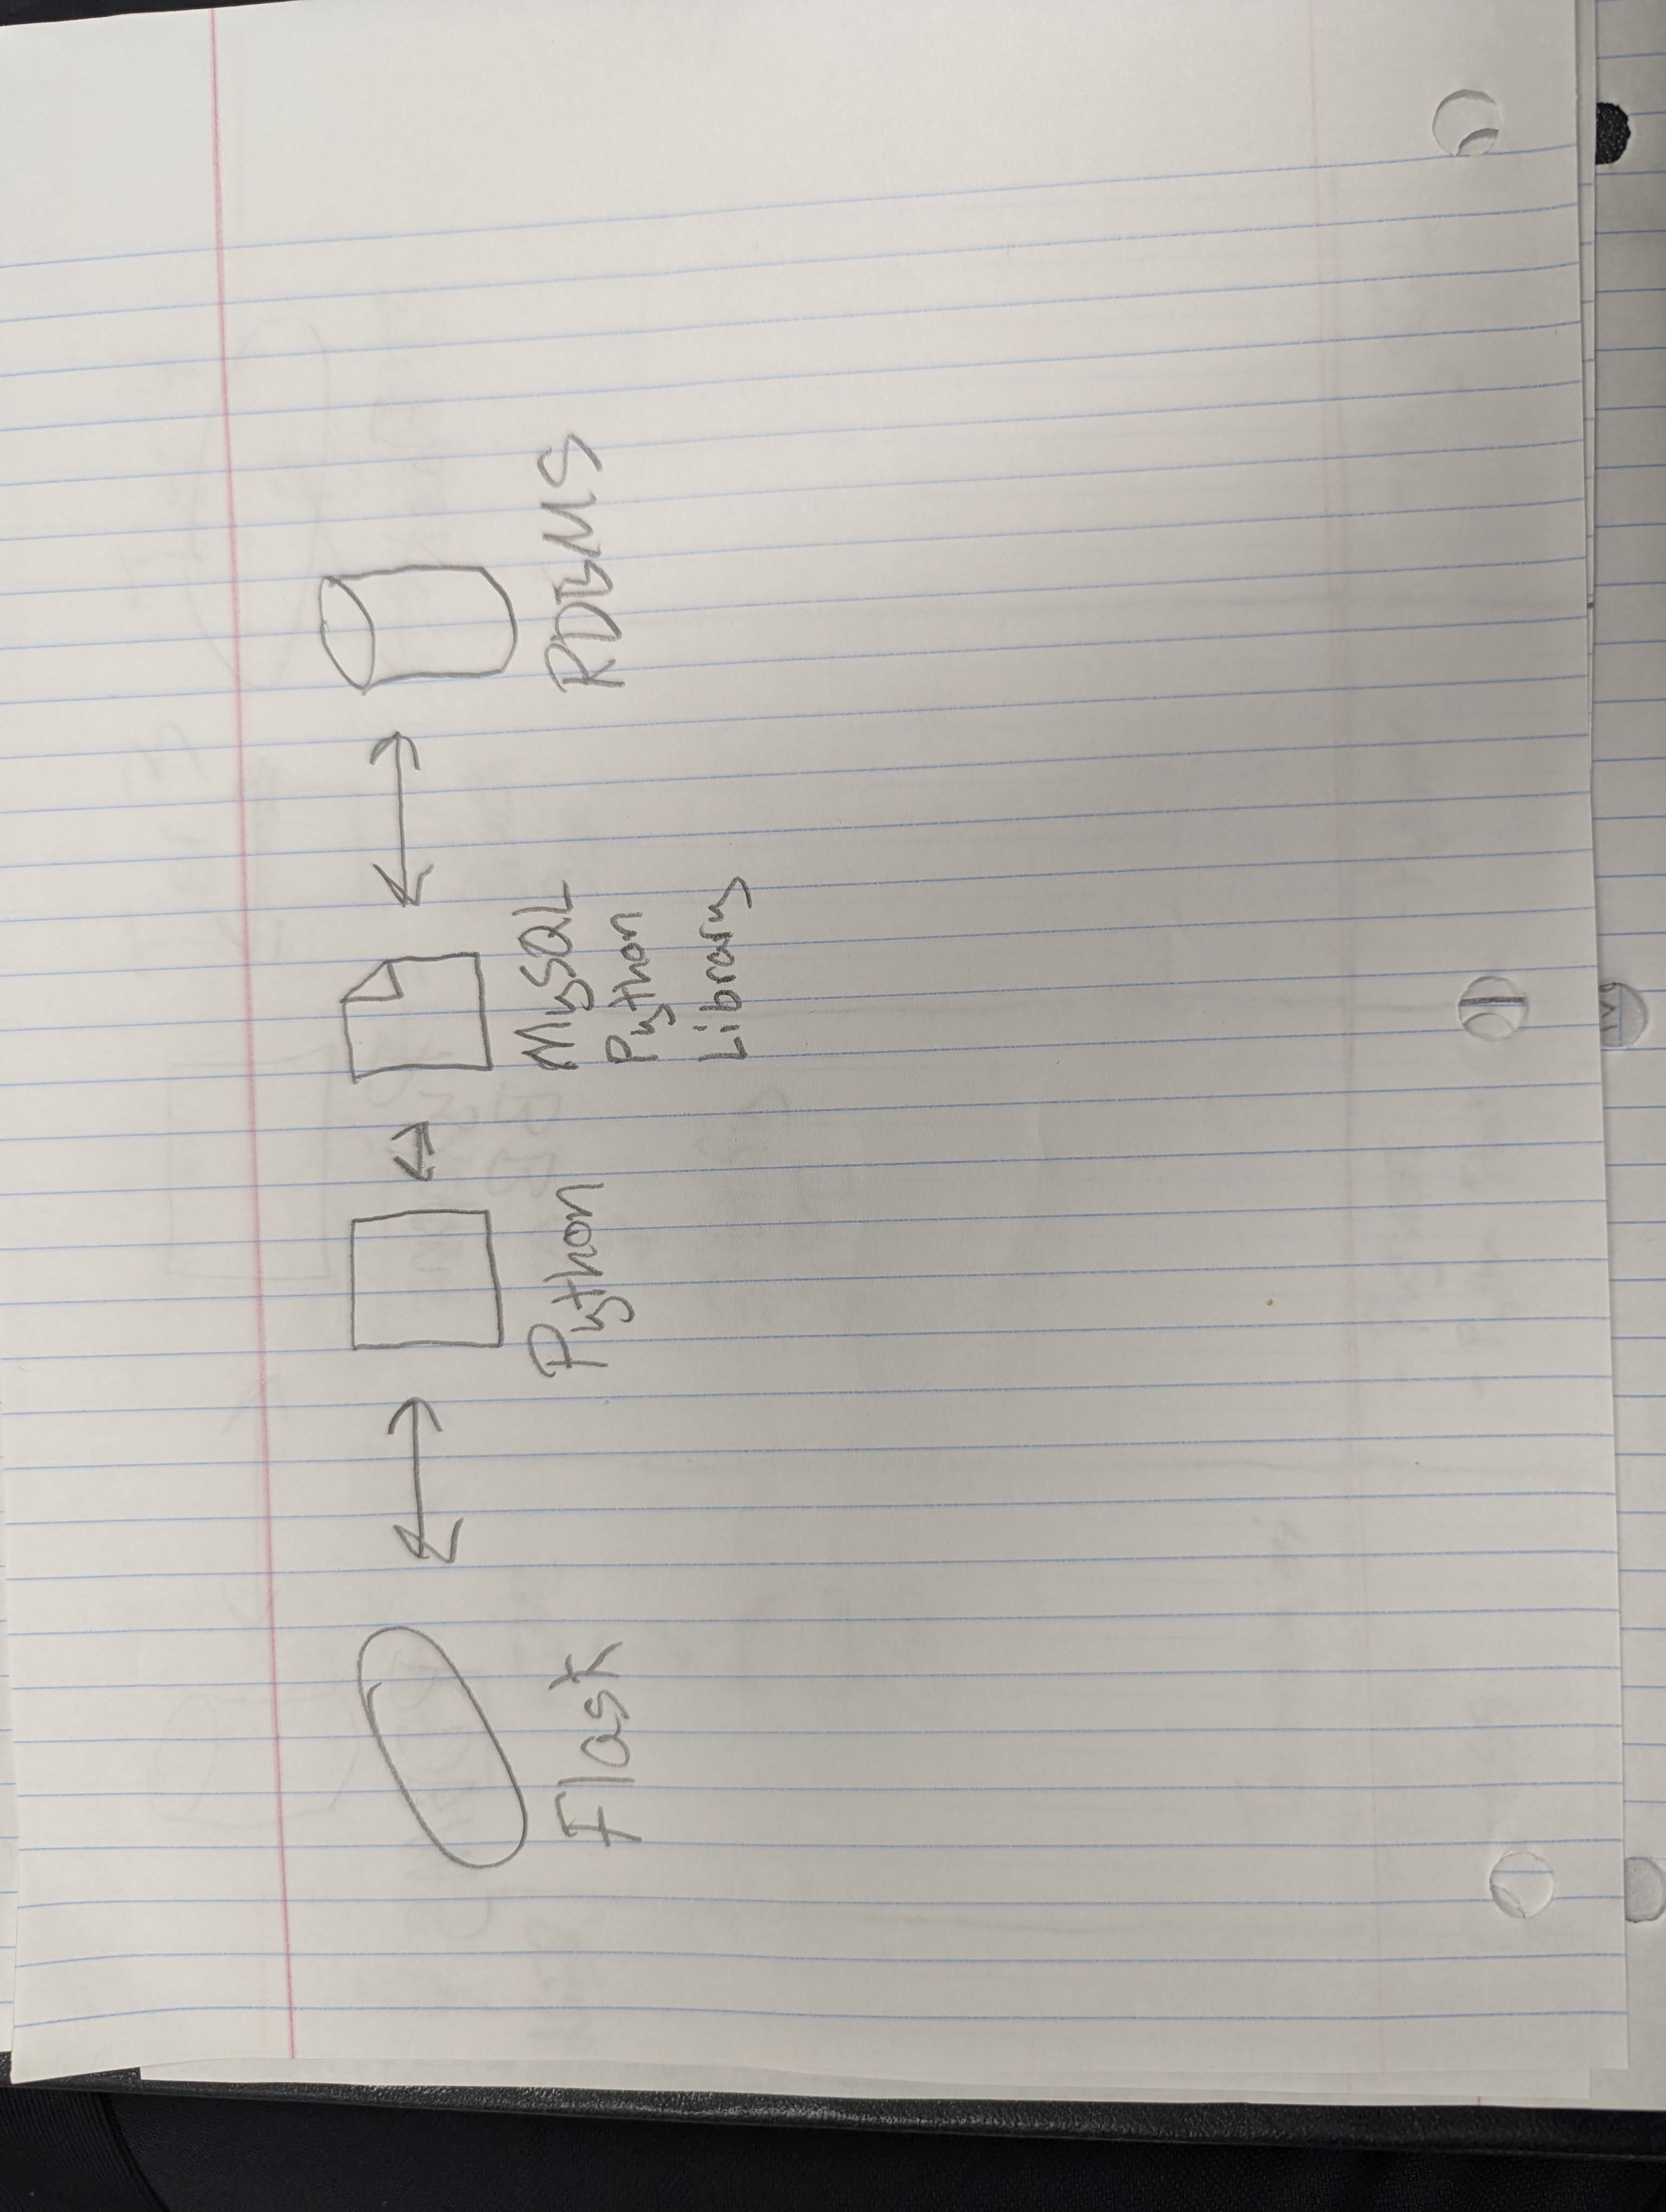 Flask
Python
MySQL
Python
Library
RDBMS